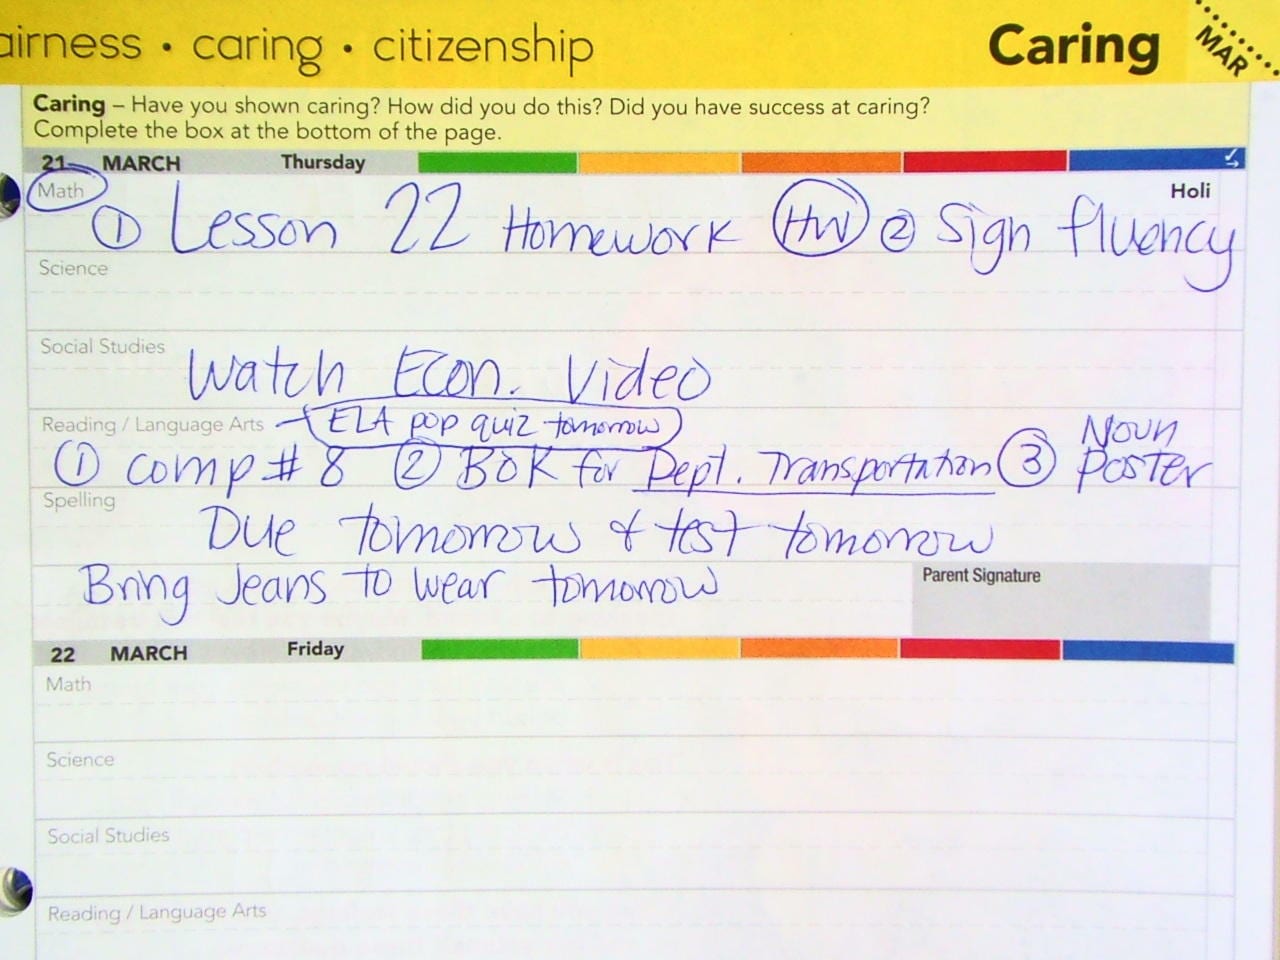 airness • caring • citizenship Caring MAR
Caring – Have you shown caring? How did you do this? Did you have success at caring?
Complete the box at the bottom of the page.
21 MARCH Thursday
Math Holi
① Lesson 22 Homework HW ② Sign fluency
Science
Social Studies
Watch Econ. Video
Reading / Language Arts ELA pop quiz tomorrow
① comp # 8 ② BOK for Dept. Transportation ③ Noun Poster
Spelling
Due tomorrow & test tomorrow
Bring Jeans to wear tomorrow
Parent Signature
22 MARCH Friday
Math
Science
Social Studies
Reading / Language Arts